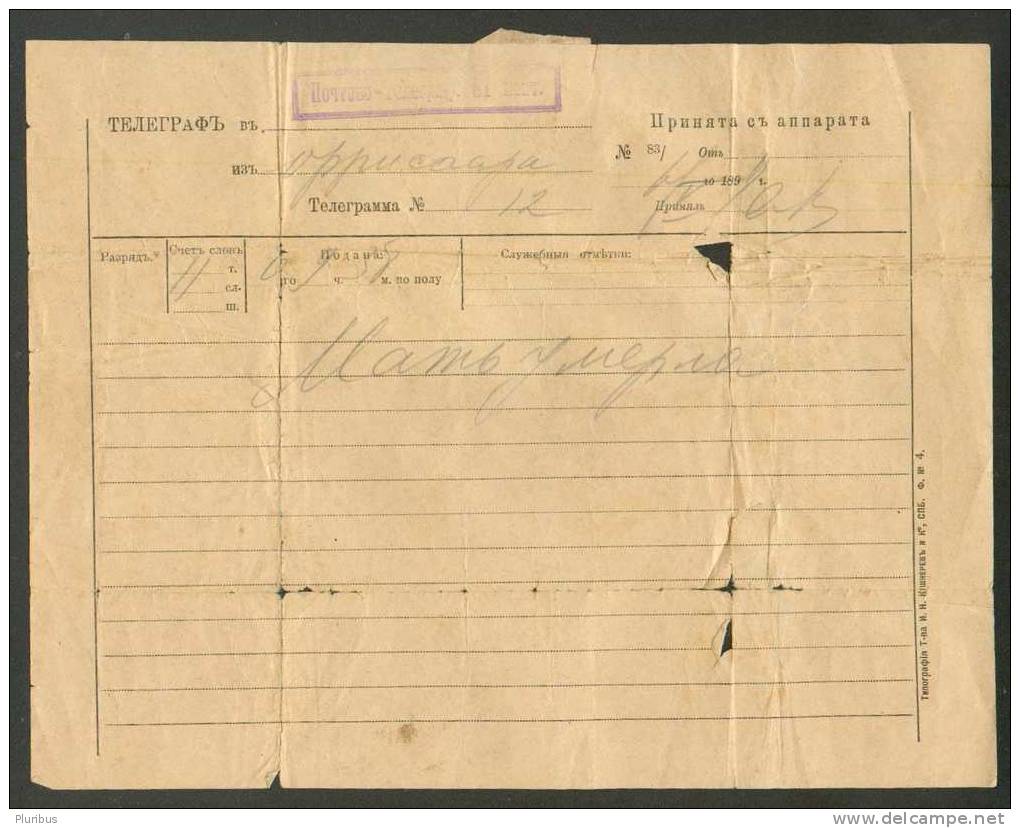 ТЕЛЕГРАФЪ въ
Принята съ аппарата
изъ Оррисаара
№ 83/ Отъ
го 189 г.
Телеграмма № 12
Принялъ
Разрядъ.
Счетъ словъ
Подана:
Служебныя отмѣтки:
11
т.
сл.
ш.
го
ч.
м. по полу
Мать умерла
Типографія Т-ва И. Н. Кушнеревъ и Кº, СПБ. Ф. № 4.
Pluribus
www.delcampe.net